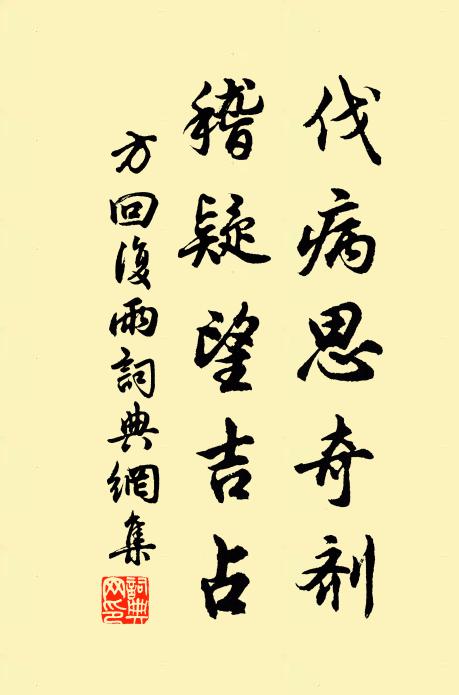 伐病思奇剂
稽疑望吉占
方回復雨詞典網集
詞典网印